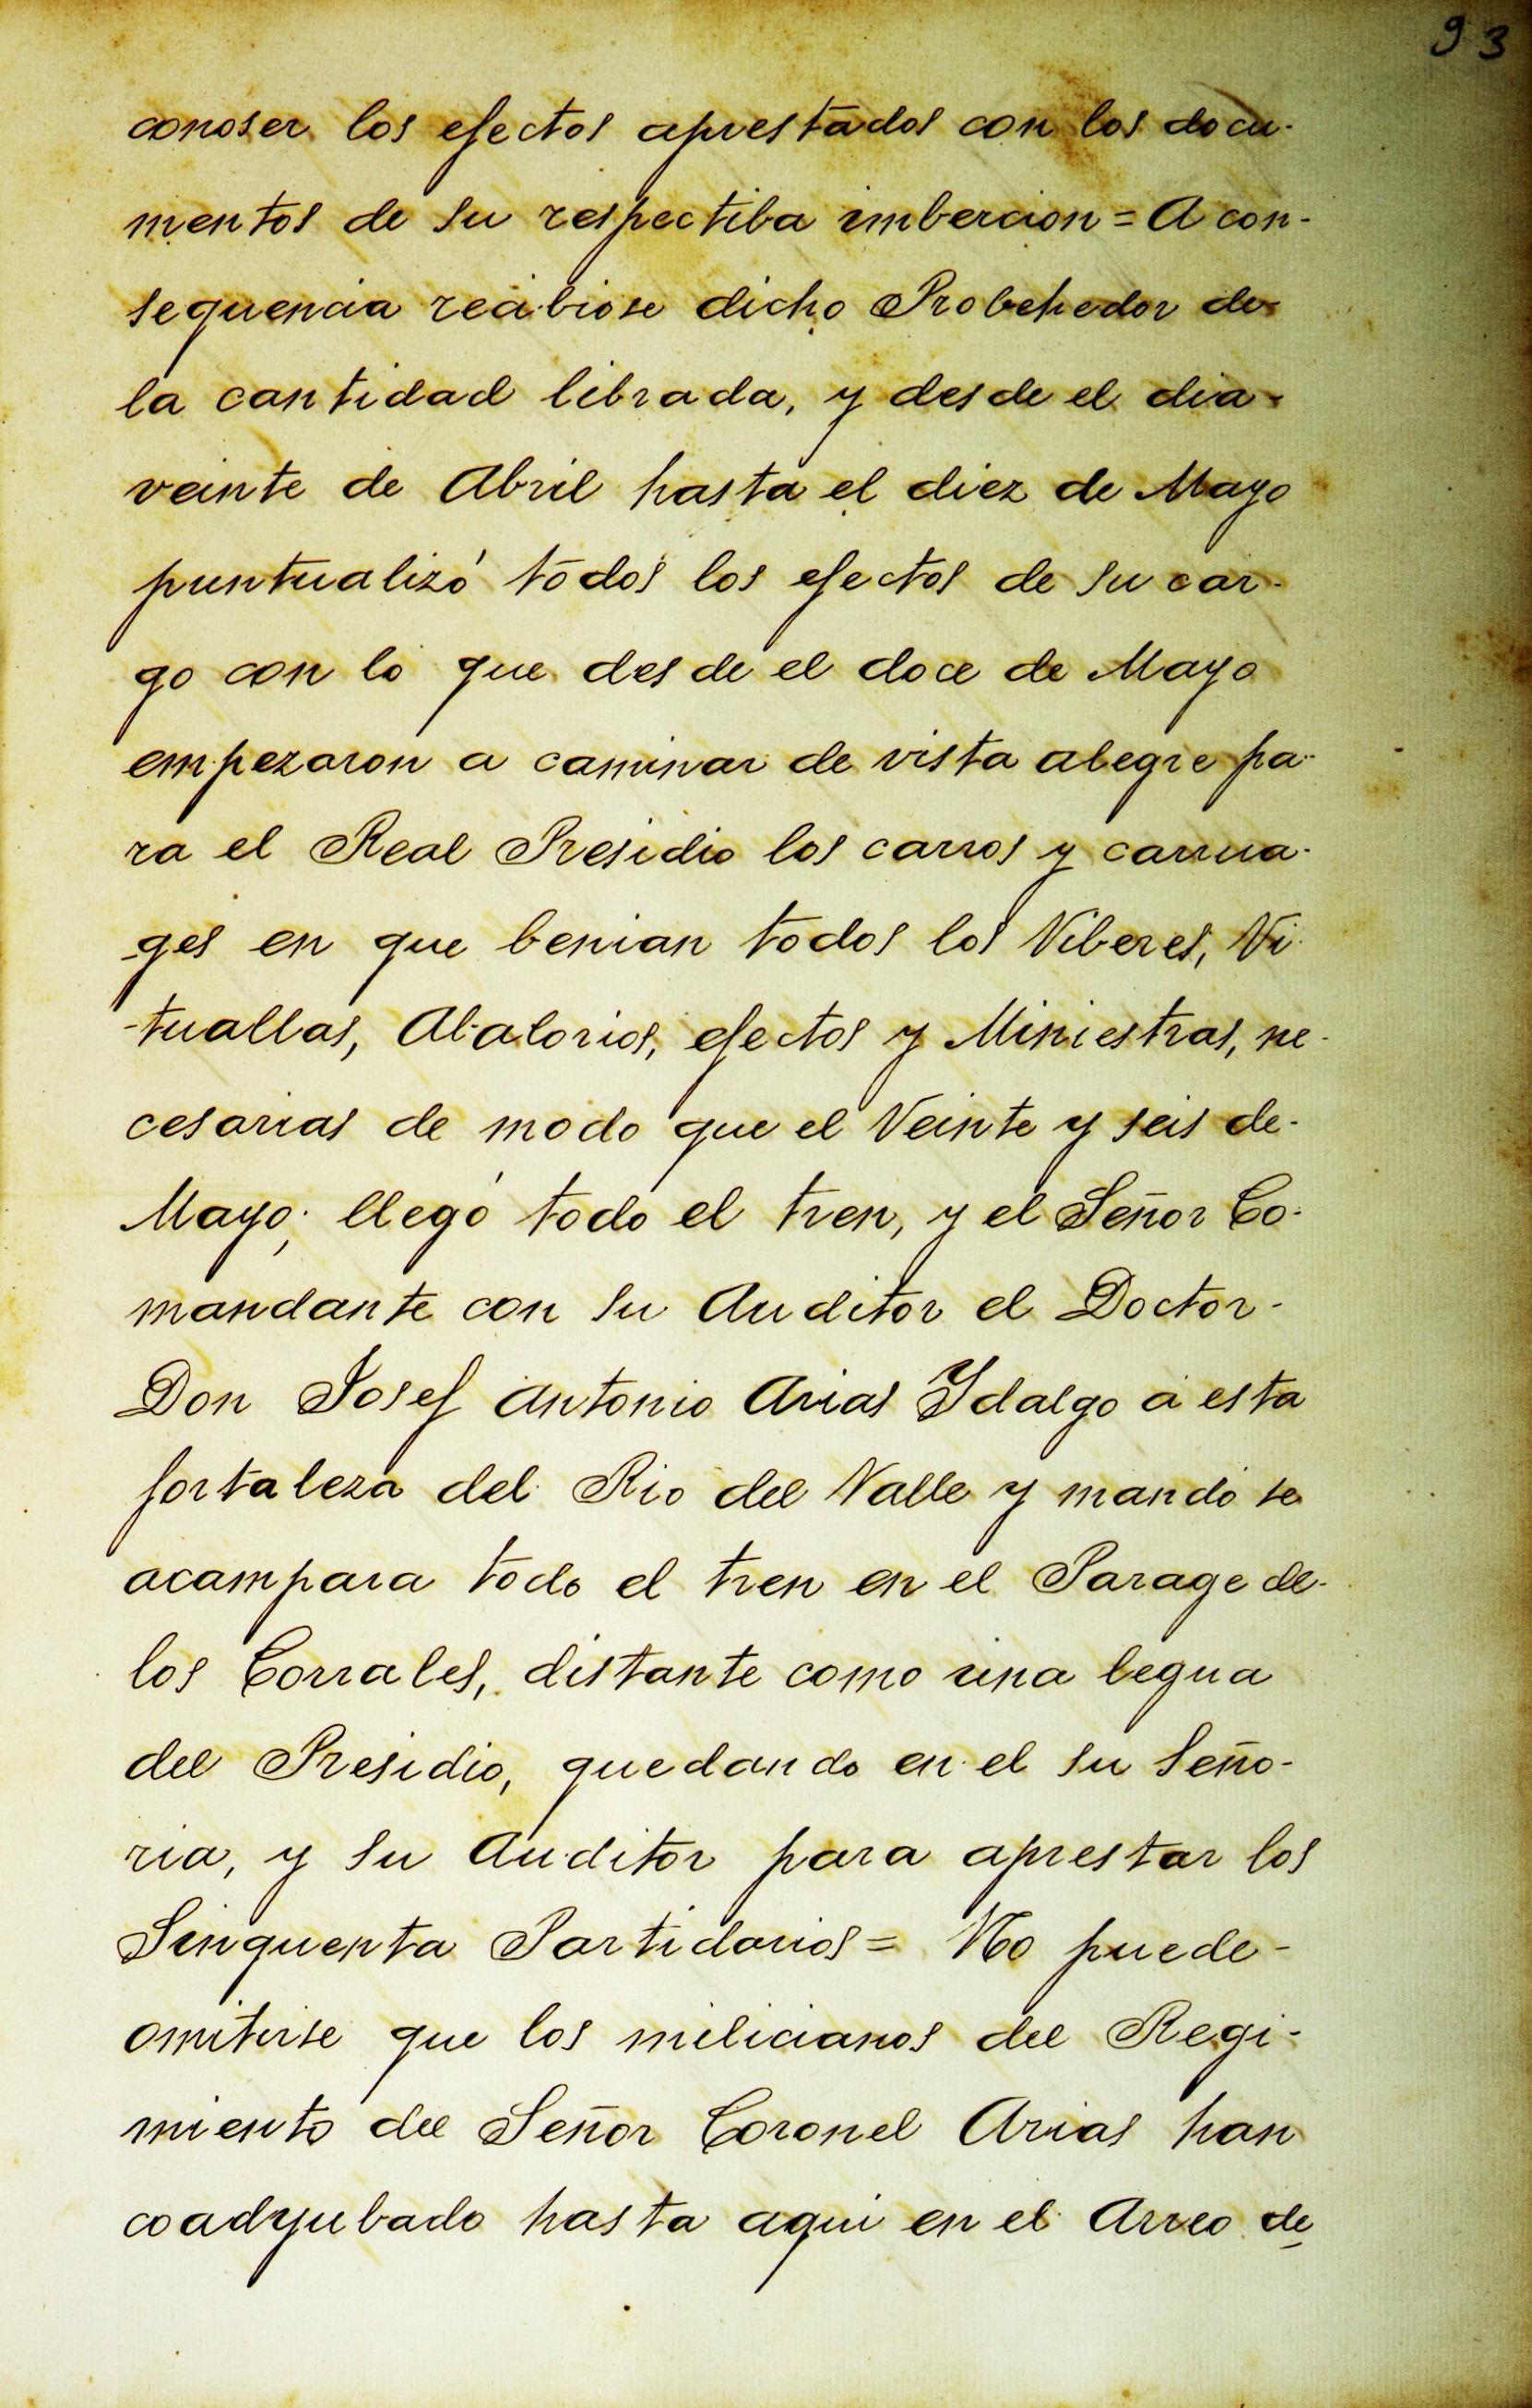 93
conoser los efectos aprestados con los docu-
mentos de su respectiba imbercion = A con-
sequencia recibiose dicho Probehedor de
la cantidad librada, y desde el dia
veinte de Abril hasta el diez de Mayo
puntualizó todos los efectos de su car-
go con lo que desde el doce de Mayo
empezaron a caminar de vista alegre pa-
ra el Real Presidio los carros y carrua-
ges en que benian todos los Viberes, Vi
-tuallas, Abalorios, efectos y Miniestras, ne-
cesarias de modo que el Veinte y seis de-
Mayo; llegó todo el tren, y el Señor Co-
mandante con su Auditor el Doctor-
Don Josef Antonio Arias Ydalgo á esta
fortaleza del Rio del Valle y mandó se
acampara todo el tren en el Parage de-
los Corrales, distante como una legua
del Presidio, quedando en el su Seño-
ria, y su Auditor para aprestar los
Sinquenta Partidarios = No puede-
omitirse que los milicianos del Regi-
miento del Señor Coronel Arias han
coadyubado hasta aqui en el Arreo de